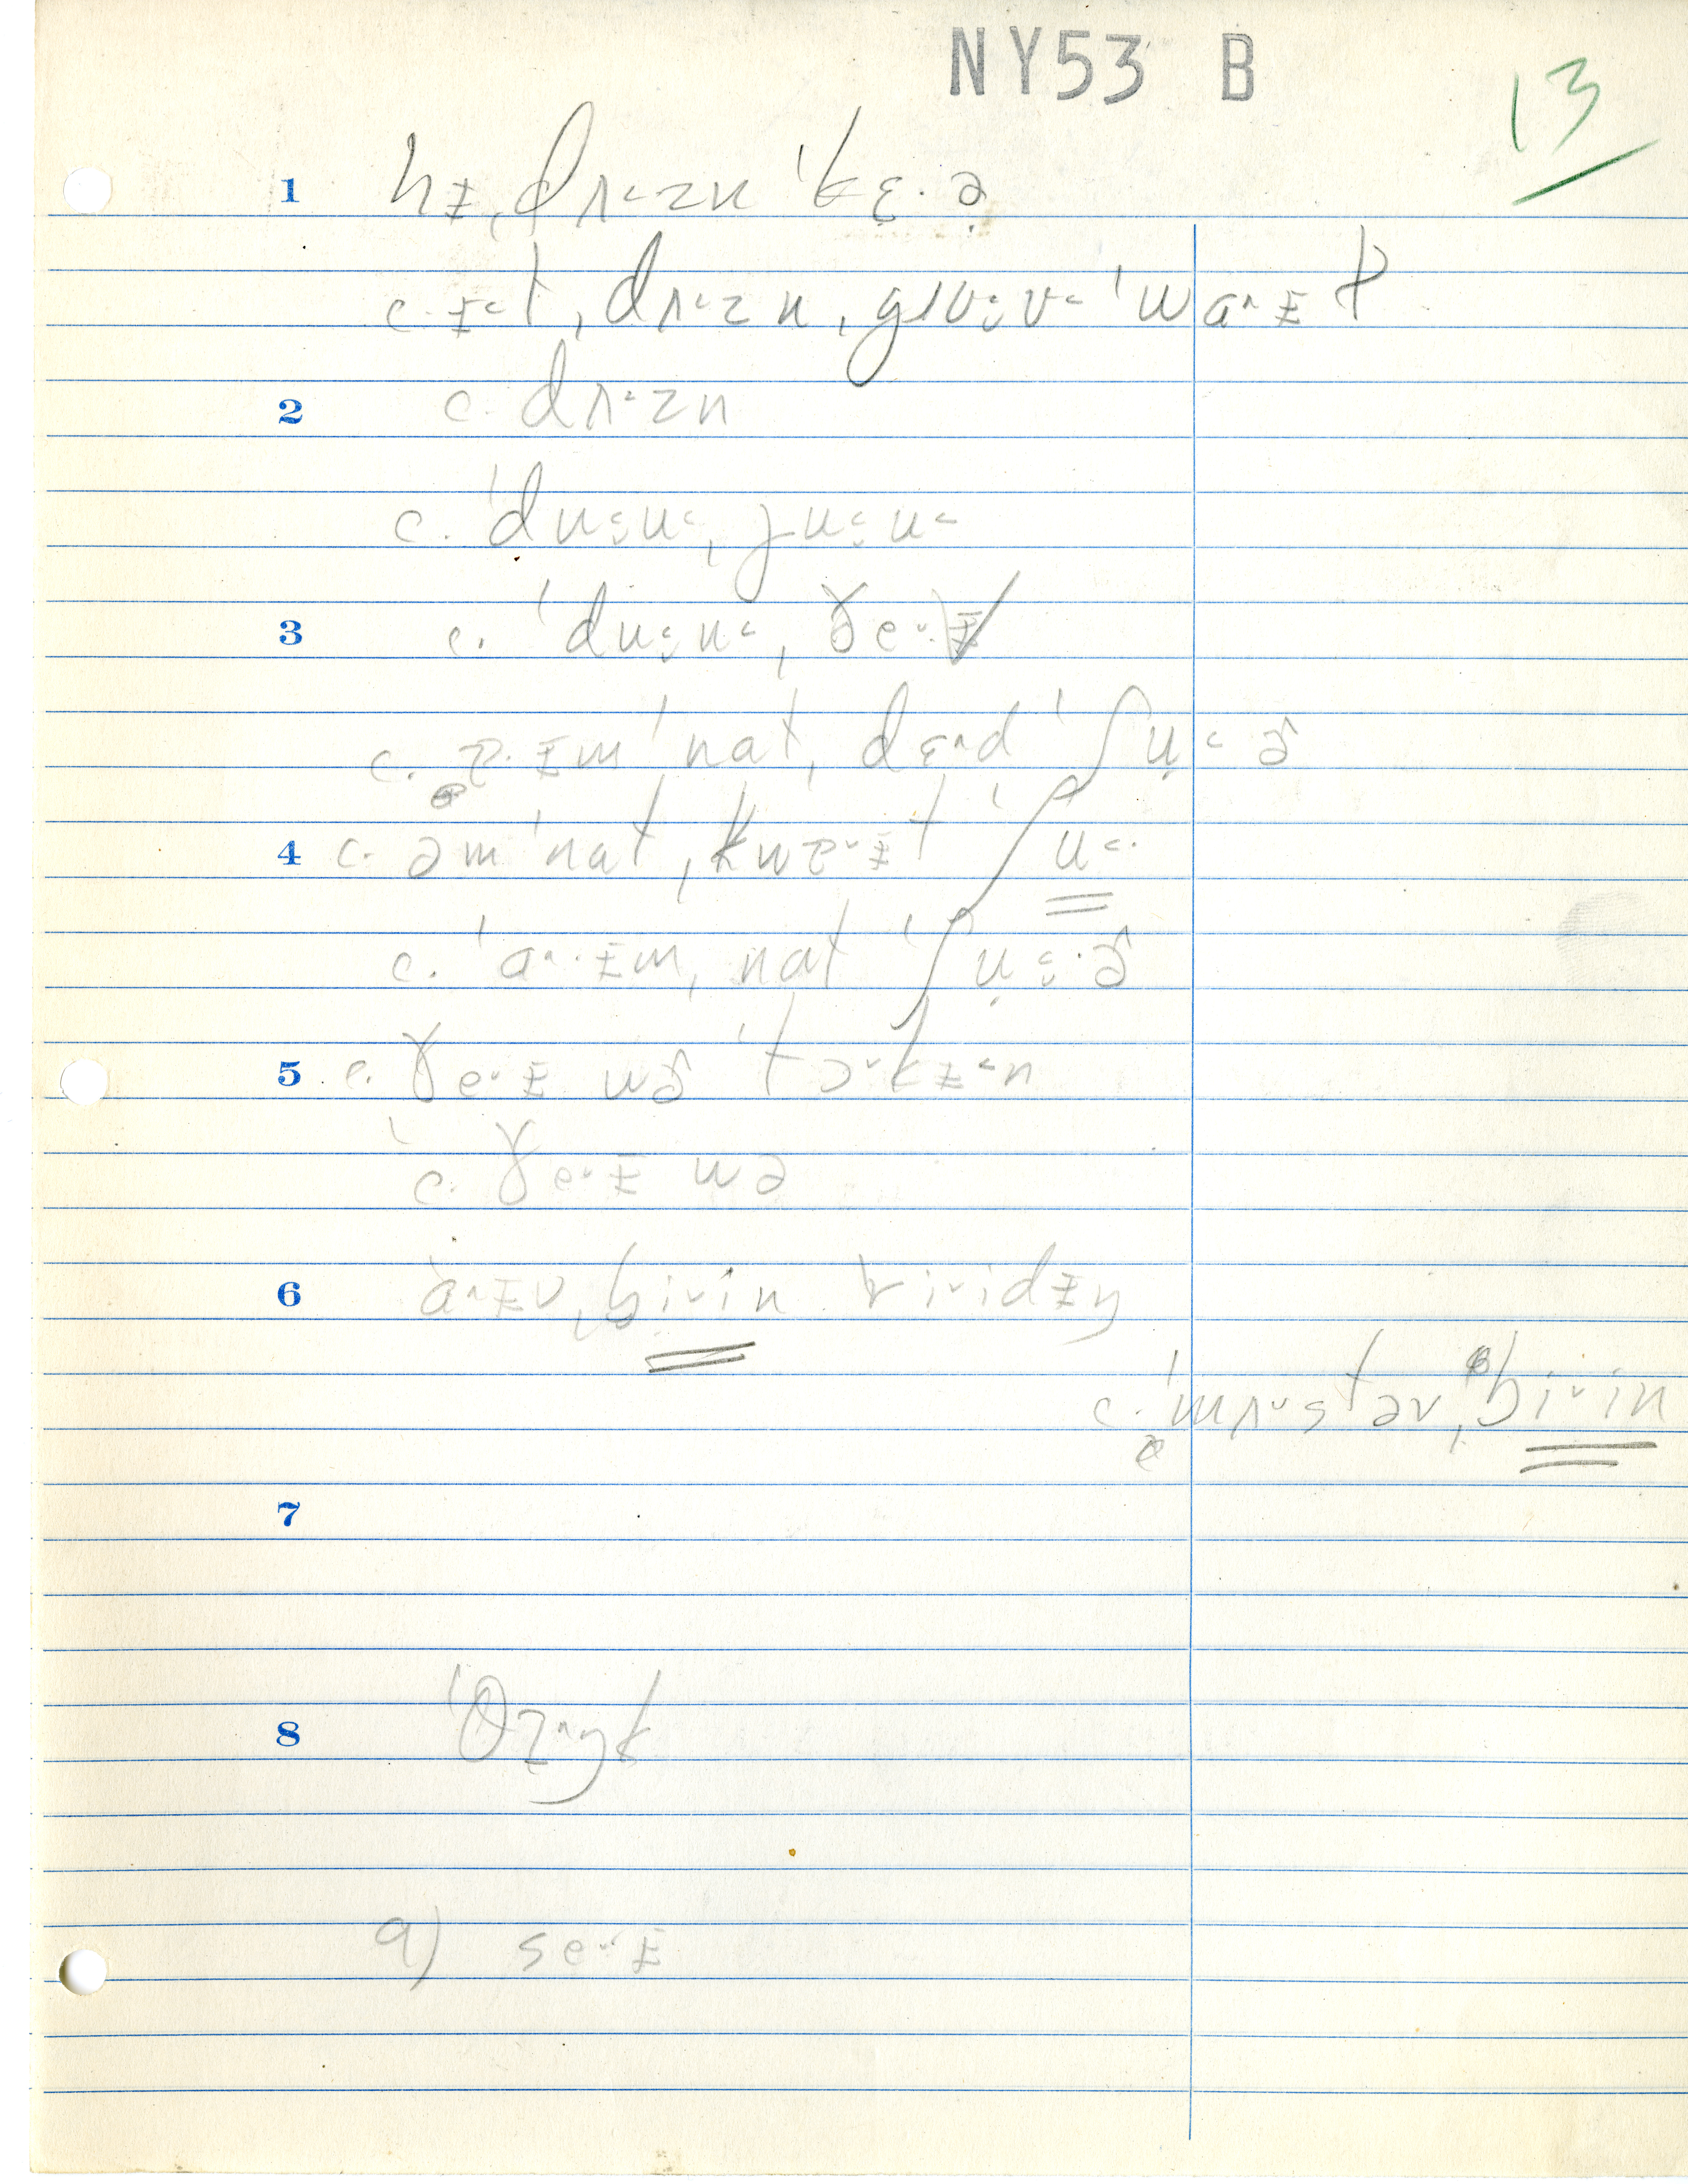 NY53 B
13
1 hɪ̵ ˌdʌ˂zn̩ ˈkɛ·ə̣
c. ɪ̵˂t ˌdʌ˂zn̩ ˌgɹʊu˂ ˈwa^ɪ̵t
2 c. dʌ˂zn̩
c. ˈdu˂u˂ ˌju˂u˂
3 c. ˈdu˂u˂ ˌðe˅ɪ̵
c. ɐ·ɪ̵m ˈnat ˌdɛ^d ˈʃu˂ɚ
4 c. əm ˈnat ˌkwɐ˅ɪ̵t ˈʃu˂·
c. ˈa^·ɪ̵m ˌnat ˈʃu˂·ɚ
5 c. ðe˅ɪ̵ wɚ ˈtɔ˅kɪ̵˂n
c. ðe˅ɪ̵ wə
6 a^ɪ̵v ˌbi˅in ri˅idɪ̵ŋ
c. ˈmʌ˅stəv ˌbi˅in
7
8 ˈθɪ^ŋk
9) se˅ɪ̵